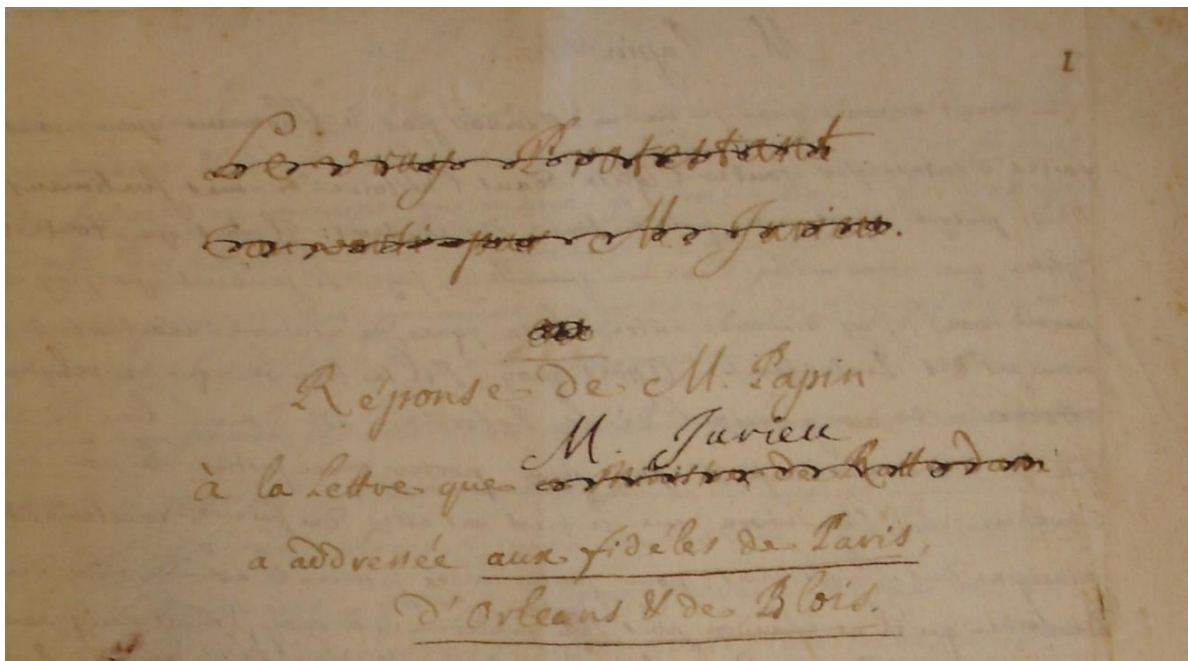 1
Le vray Protestant
Converti par M. Jurieu.
Réponse de M. Papin
M. Jurieu
à la Lettre que ce Ministre de Rotterdam
a addressée aux fidéles de Paris,
d'Orleans & de Blois.